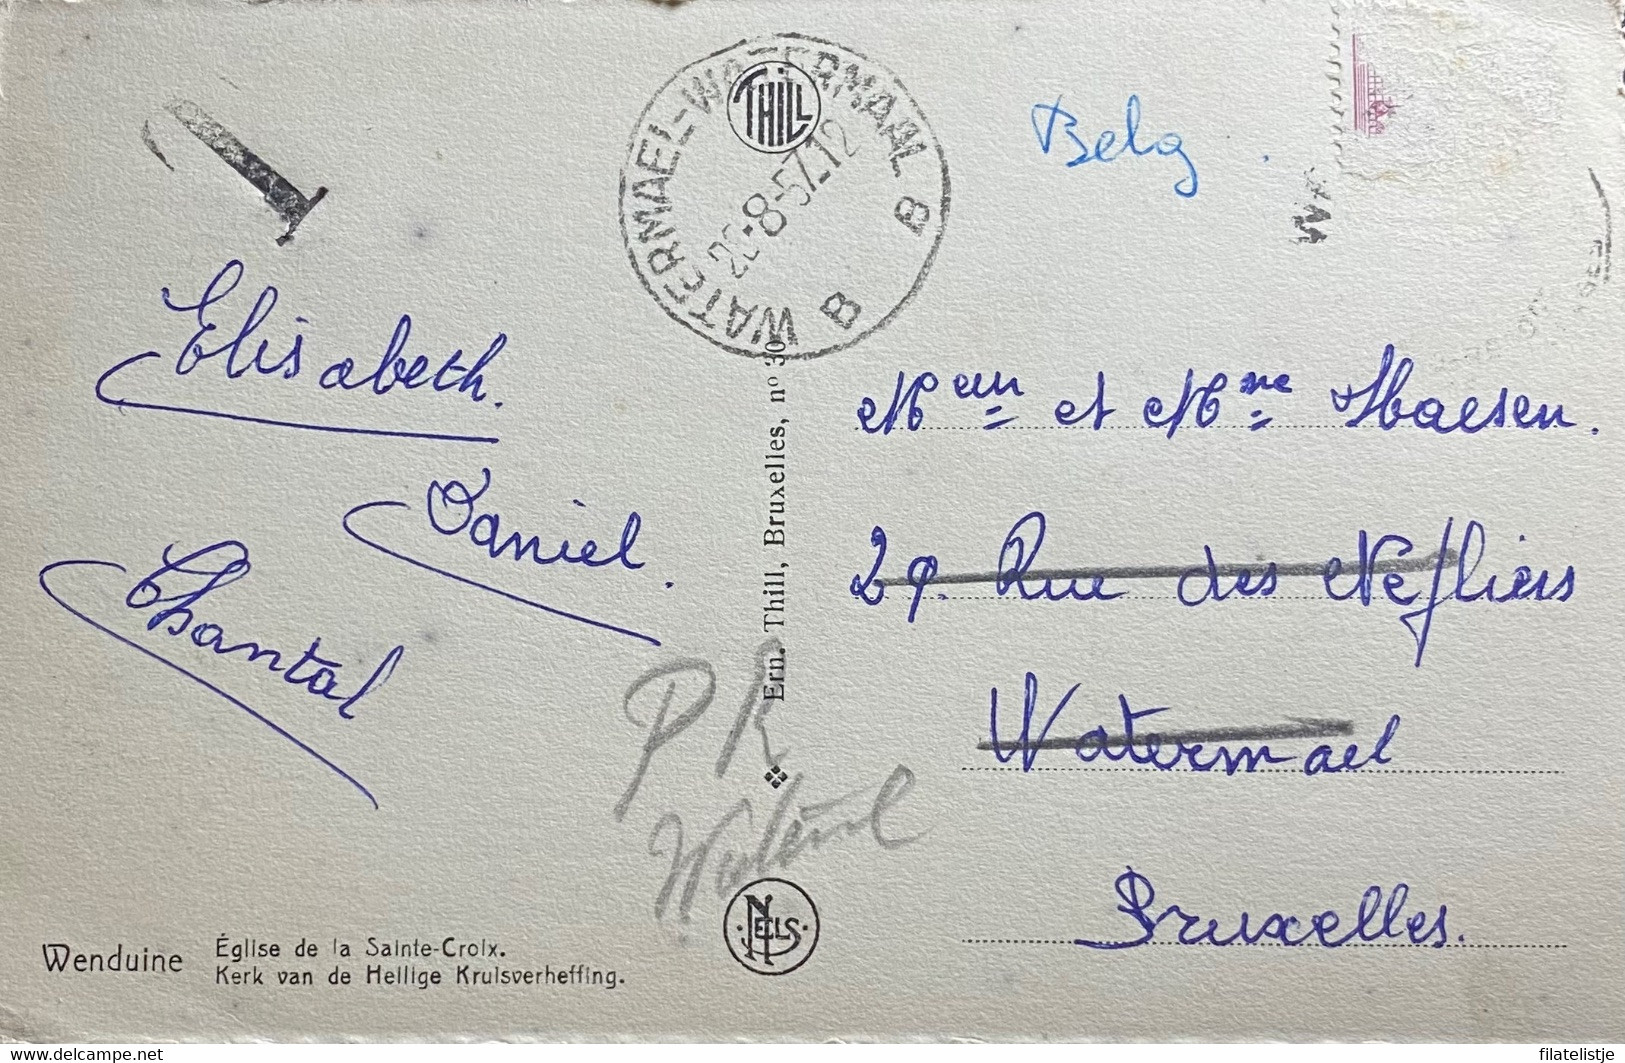 THILL
WATERMAEL-WATERMAAL
8-57.12
B B
Belg.
Elisabeth.
Daniel.
Chantal
Meur et Mme Haesen.
29. Rue des Néfliers
Watermael
Bruxelles.
P R
Ern. Thill, Bruxelles, nº 30
NELS
Wenduine
Église de la Sainte-Croix.
Kerk van de Heilige Kruisverheffing.
© filatelistje
delcampe.net